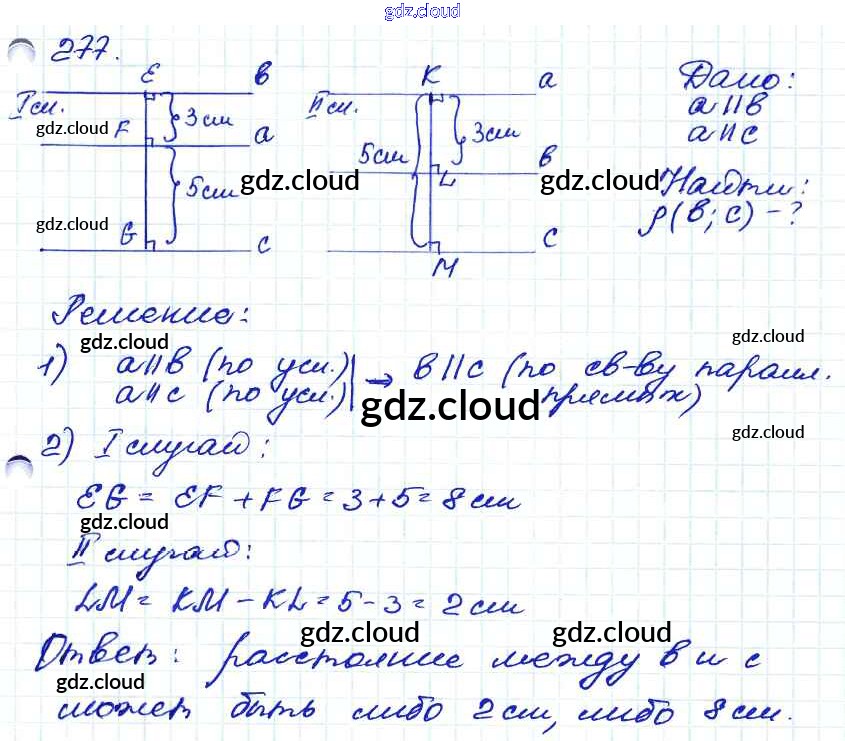 gdz.cloud
277.
E в K a Дано:
I сл. 3 см II сл. a || в
gdz.cloud F a 5 см 3 см a || c
5 см gdz.cloud L в gdz.cloud Найти:
gdz.cloud G c M c ρ(в; c) - ?
Решение:
gdz.cloud gdz.cloud
1) a || в (по усл.) → в || c (по св-ву паралл.
a || c (по усл.) gdz.cloud прямых)
2) I случай: gdz.cloud
EG = EF + FG = 3 + 5 = 8 см
gdz.cloud
II случай:
LM = KM - KL = 5 - 3 = 2 см
gdz.cloud gdz.cloud
Ответ: расстояние между в и с
gdz.cloud
может быть либо 2 см, либо 8 см.